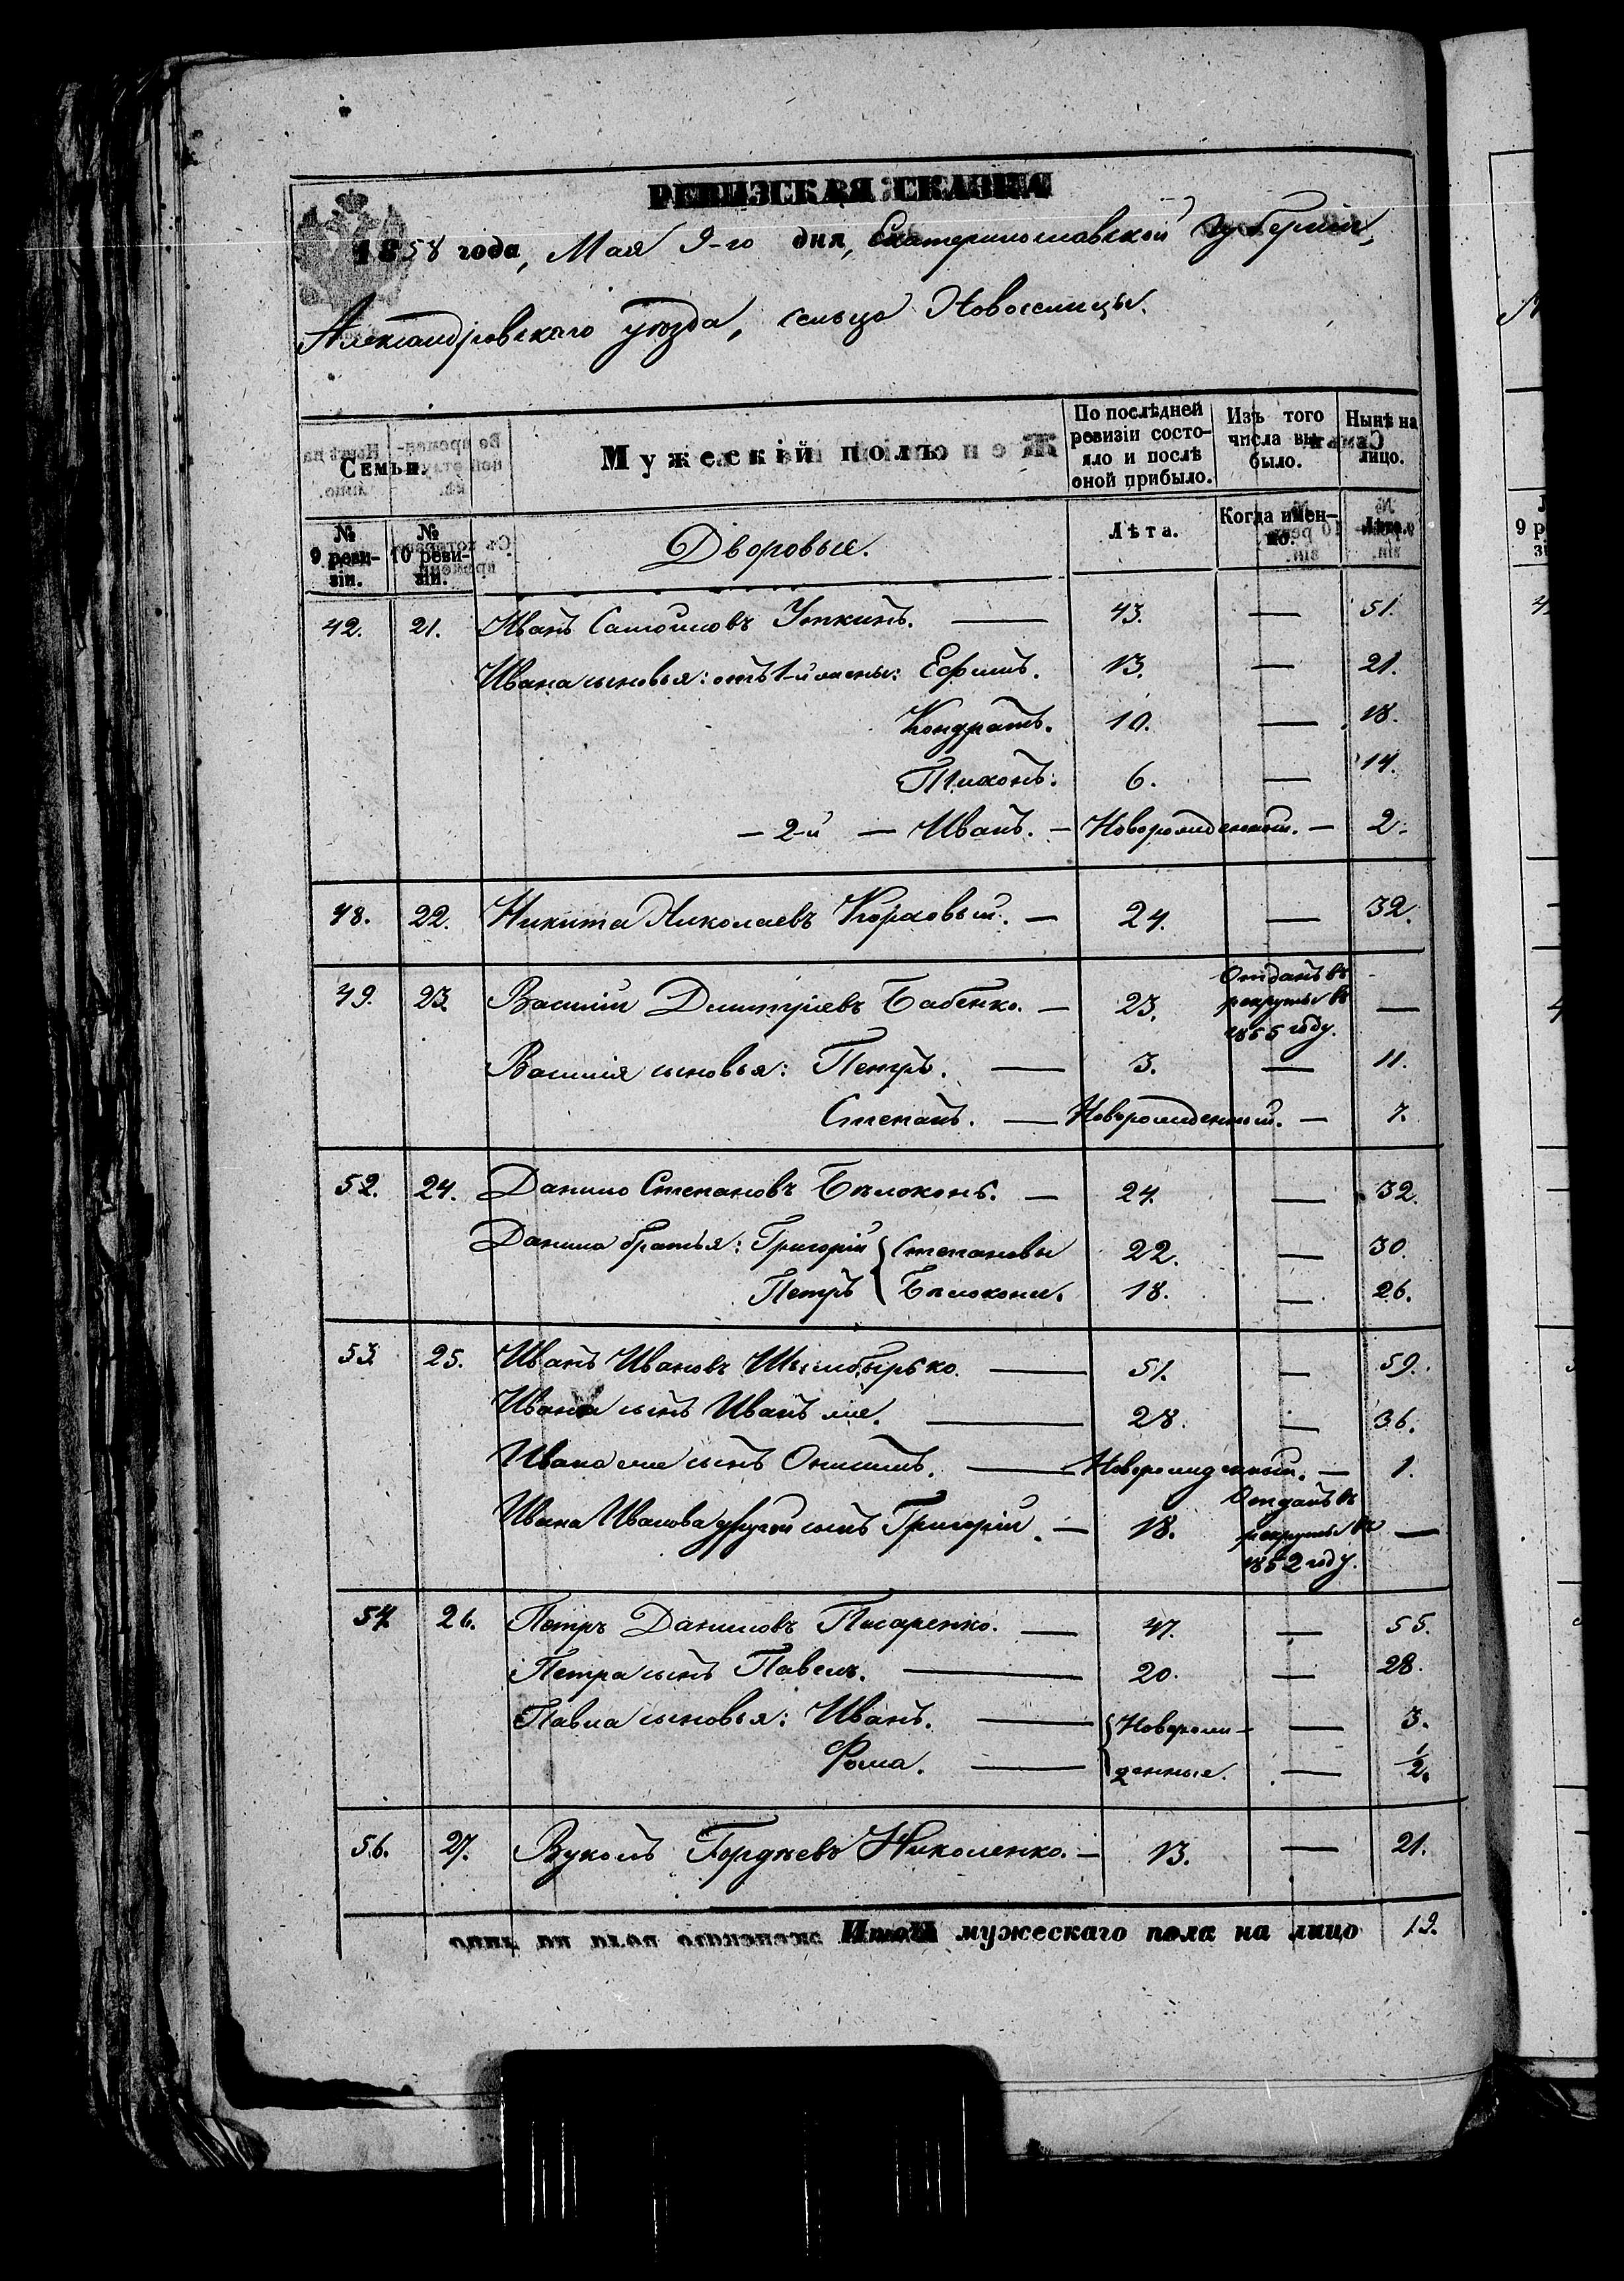 РЕВИЗСКАЯ СКАЗКА
1858 года, Мая 9-го дня, Екатеринославской Губерніи,
Александровскаго уѣзда, сельцо Новоселицы.
Семьи. Мужескій полъ По послѣдней ревизіи состояло и послѣ оной прибыло. Изъ того числа выбыло. Нынѣ на лицо.
№ 9 ревизіи. № 10 ревизіи. Дворовые. Лѣта. Когда именно. Лѣта.
42. 21. Иванъ Самойловъ — 43. — 51.
Ивана сыновья: отъ 1-й жены: Ефимъ. 13. — 21.
Кондратъ. 10. — 18.
Тихонъ. 6. — 14.
— 2-й — Иванъ. — Новорожденный. — 2.
48. 22. Никита Николаевъ — 24. — 32.
49. 23. Василій Дмитріевъ Бабенко. — 23. Отданъ въ рекруты въ 1855 году. —
Василія сыновья: Петръ. — 3. — 11.
Степанъ. — Новорожденный. — 7.
52. 24. Данило Степановъ Бѣлоконь. — 24. — 32.
Данила братья: Григорій { Степановы 22. — 30.
Петръ { Бѣлокони. 18. — 26.
53. 25. Иванъ Ивановъ — 51. — 59.
Ивана сынъ Иванъ же. — 28. — 36.
Ивана же сынъ Онисимъ. — Новорожденный. — 1.
Ивана Иванова другой сынъ Григорій. — 18. Отданъ въ рекруты въ 1852 году. —
54. 26. Петръ Даниловъ Писаренко. — 47. — 55.
Петра сынъ Павелъ. — 20. — 28.
Павла сыновья: Иванъ. — { Новорож- — 3.
Фома. — { денные. — 1/2.
56. 27. Вуколъ Гордѣевъ Николенко. — 13. — 21.
Итого мужескаго пола на лицо 19.